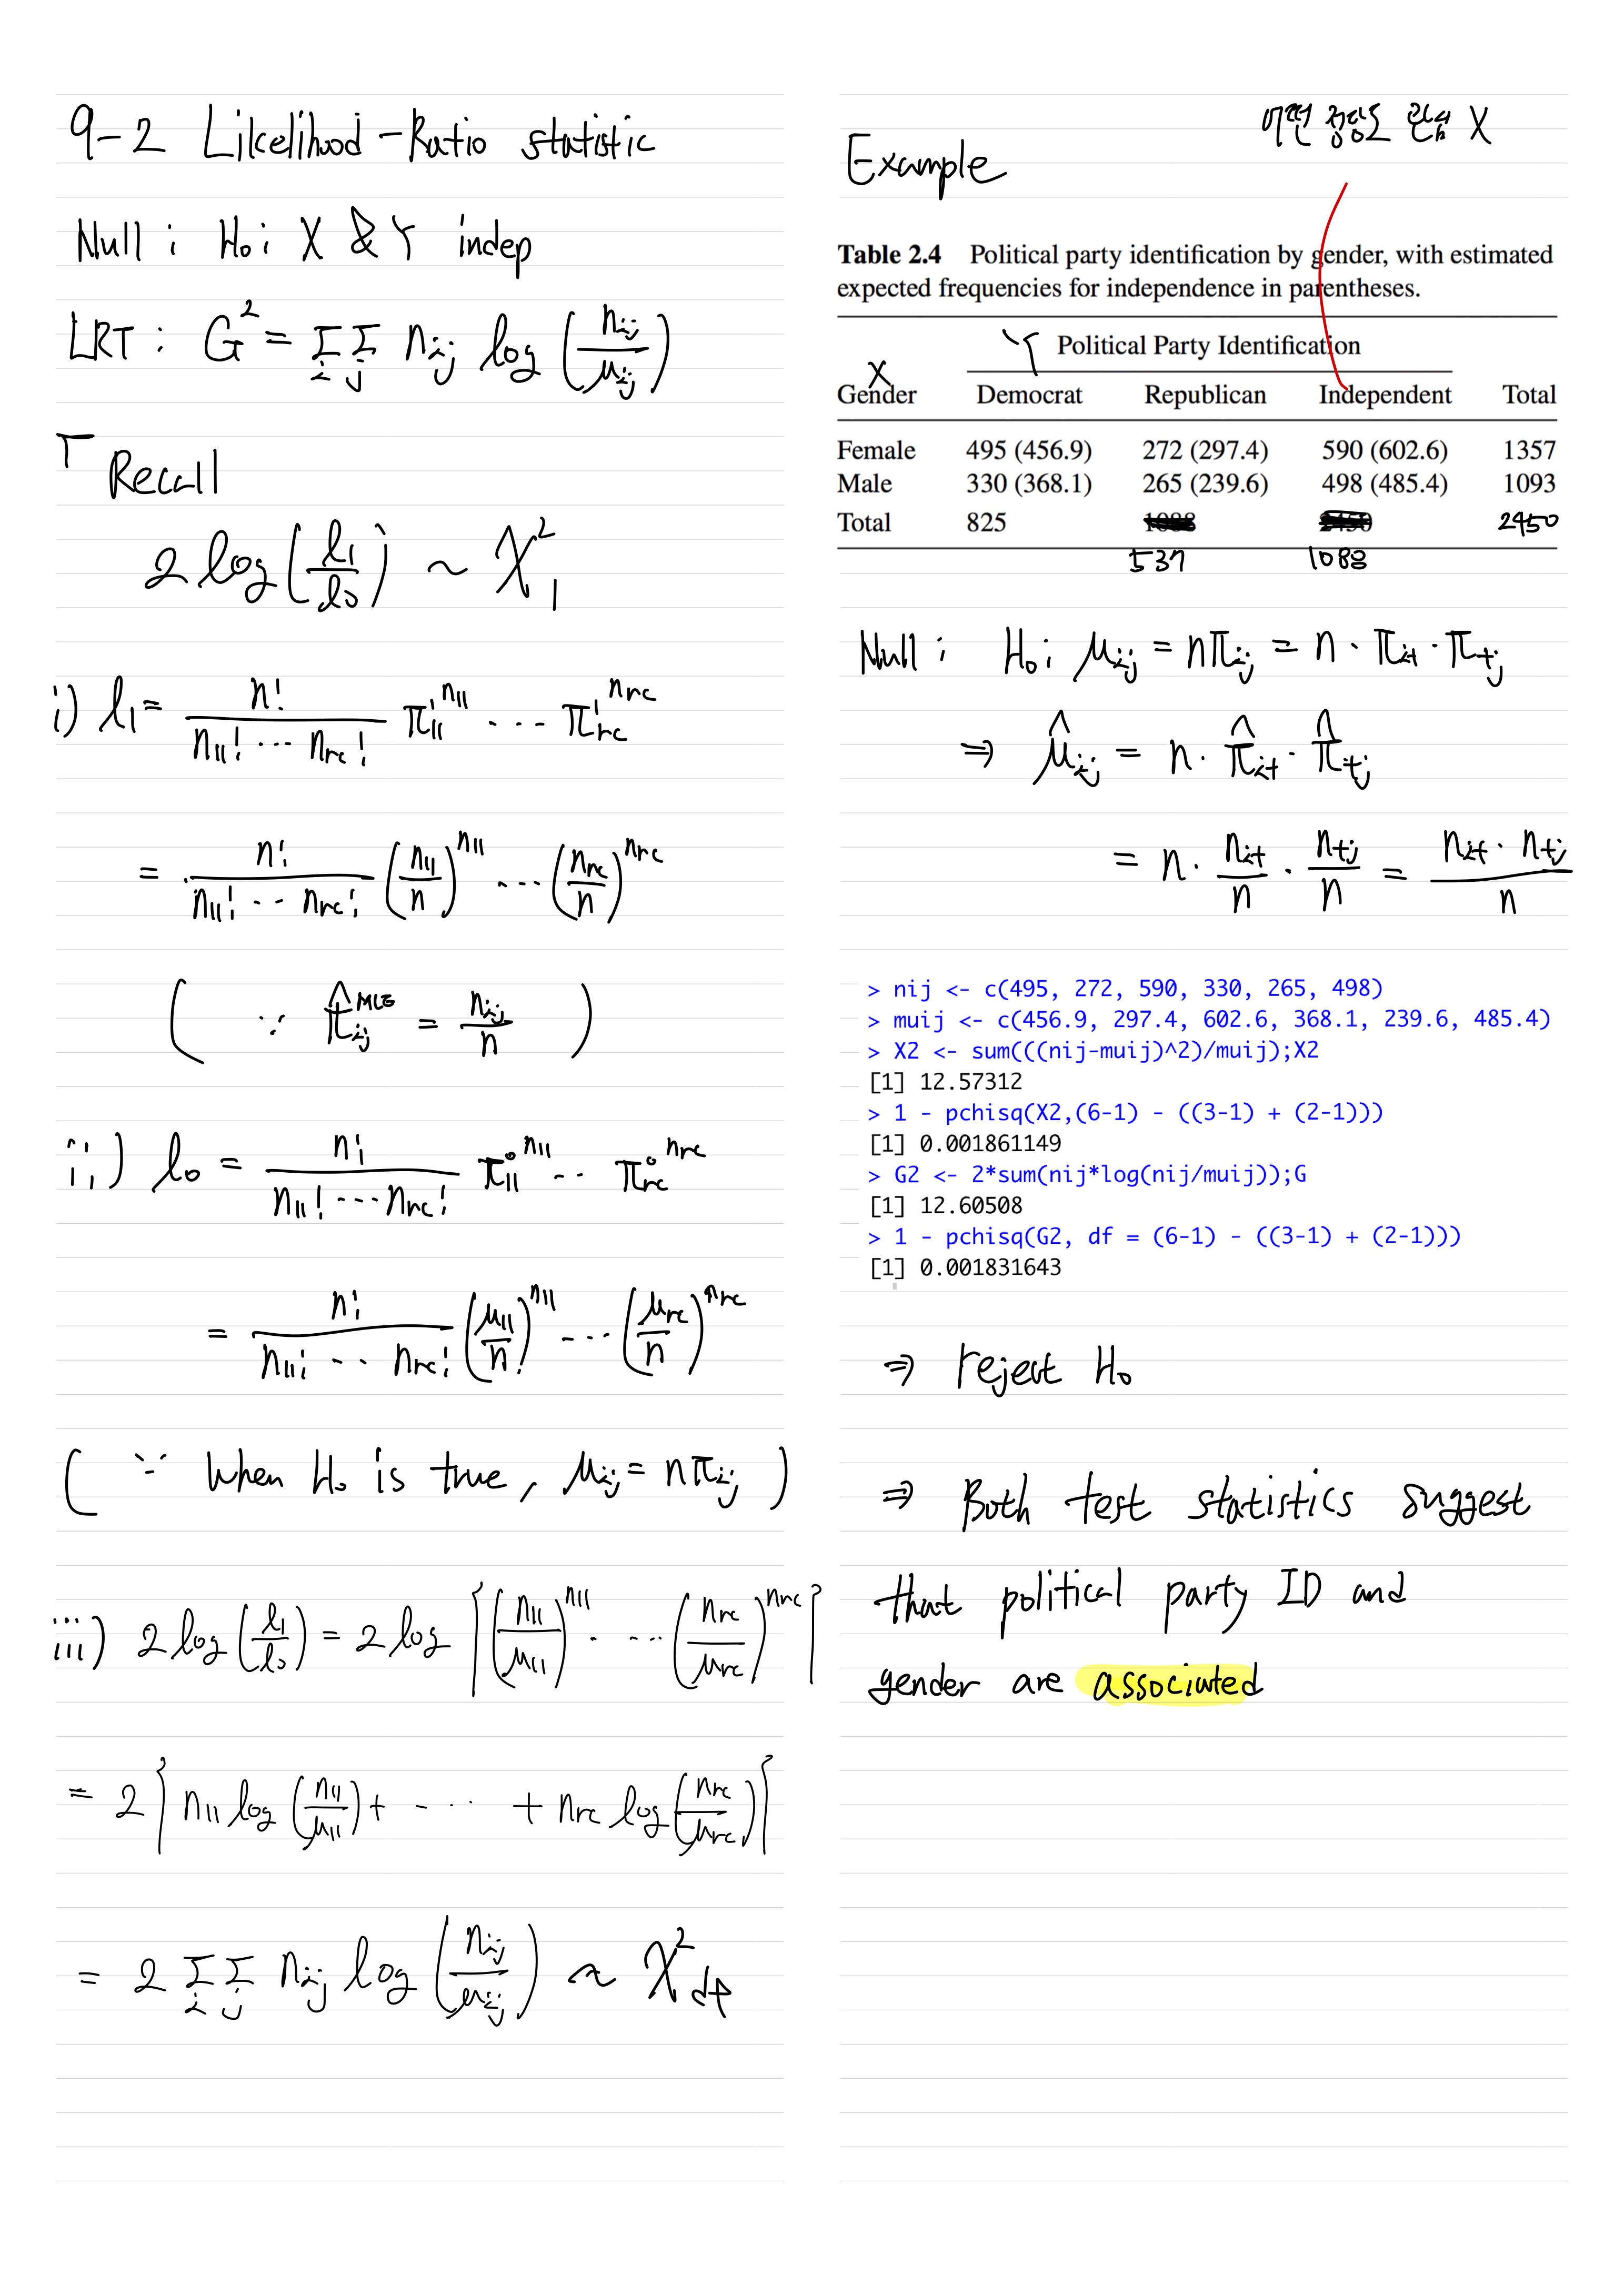 9-2 Likelihood-Ratio statistic
Null : H₀ : X & Y indep
LRT : G² = Σᵢ Σⱼ nᵢⱼ log (nᵢⱼ / μᵢⱼ)
Recall
2 log (l₁ / l₀) ~ χ²₁
i) l₁ = n! / (n₁₁! ⋯ n_rc!) π₁₁¹^n₁₁ ⋯ π_rc¹^n_rc
= n! / (n₁₁! ⋯ n_rc!) (n₁₁ / n)^n₁₁ ⋯ (n_rc / n)^n_rc
( ∵ π̂ᵢⱼ^MLE = nᵢⱼ / n )
ii) l₀ = n! / (n₁₁! ⋯ n_rc!) π₁₁⁰^n₁₁ ⋯ π_rc⁰^n_rc
= n! / (n₁₁! ⋯ n_rc!) (μ₁₁ / n)^n₁₁ ⋯ (μ_rc / n)^n_rc
( ∵ When H₀ is true, μᵢⱼ = nπᵢⱼ )
iii) 2 log (l₁ / l₀) = 2 log { (n₁₁ / μ₁₁)^n₁₁ ⋯ (n_rc / μ_rc)^n_rc }
= 2 { n₁₁ log (n₁₁ / μ₁₁) + ⋯ + n_rc log (n_rc / μ_rc) }
= 2 Σᵢ Σⱼ nᵢⱼ log (nᵢⱼ / μᵢⱼ) ~ χ²_df
어떤 정당도 관심 X
Example
Table 2.4 Political party identification by gender, with estimated
expected frequencies for independence in parentheses.
Y Political Party Identification
X
Gender Democrat Republican Independent Total
Female 495 (456.9) 272 (297.4) 590 (602.6) 1357
Male 330 (368.1) 265 (239.6) 498 (485.4) 1093
Total 825 2450
537 1088
Null : H₀ : μᵢⱼ = nπᵢⱼ = n · πᵢ₊ · π₊ⱼ
⇒ μ̂ᵢⱼ = n · π̂ᵢ₊ · π̂₊ⱼ
= n · nᵢ₊ / n · n₊ⱼ / n = nᵢ₊ · n₊ⱼ / n
> nij <- c(495, 272, 590, 330, 265, 498)
> muij <- c(456.9, 297.4, 602.6, 368.1, 239.6, 485.4)
> X2 <- sum(((nij-muij)^2)/muij);X2
[1] 12.57312
> 1 - pchisq(X2,(6-1) - ((3-1) + (2-1)))
[1] 0.001861149
> G2 <- 2*sum(nij*log(nij/muij));G
[1] 12.60508
> 1 - pchisq(G2, df = (6-1) - ((3-1) + (2-1)))
[1] 0.001831643
⇒ reject H₀
⇒ Both test statistics suggest
that political party ID and
gender are associated